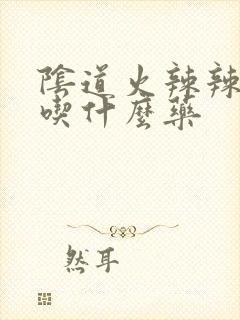 陰道火辣辣
喫什麼藥
然耳